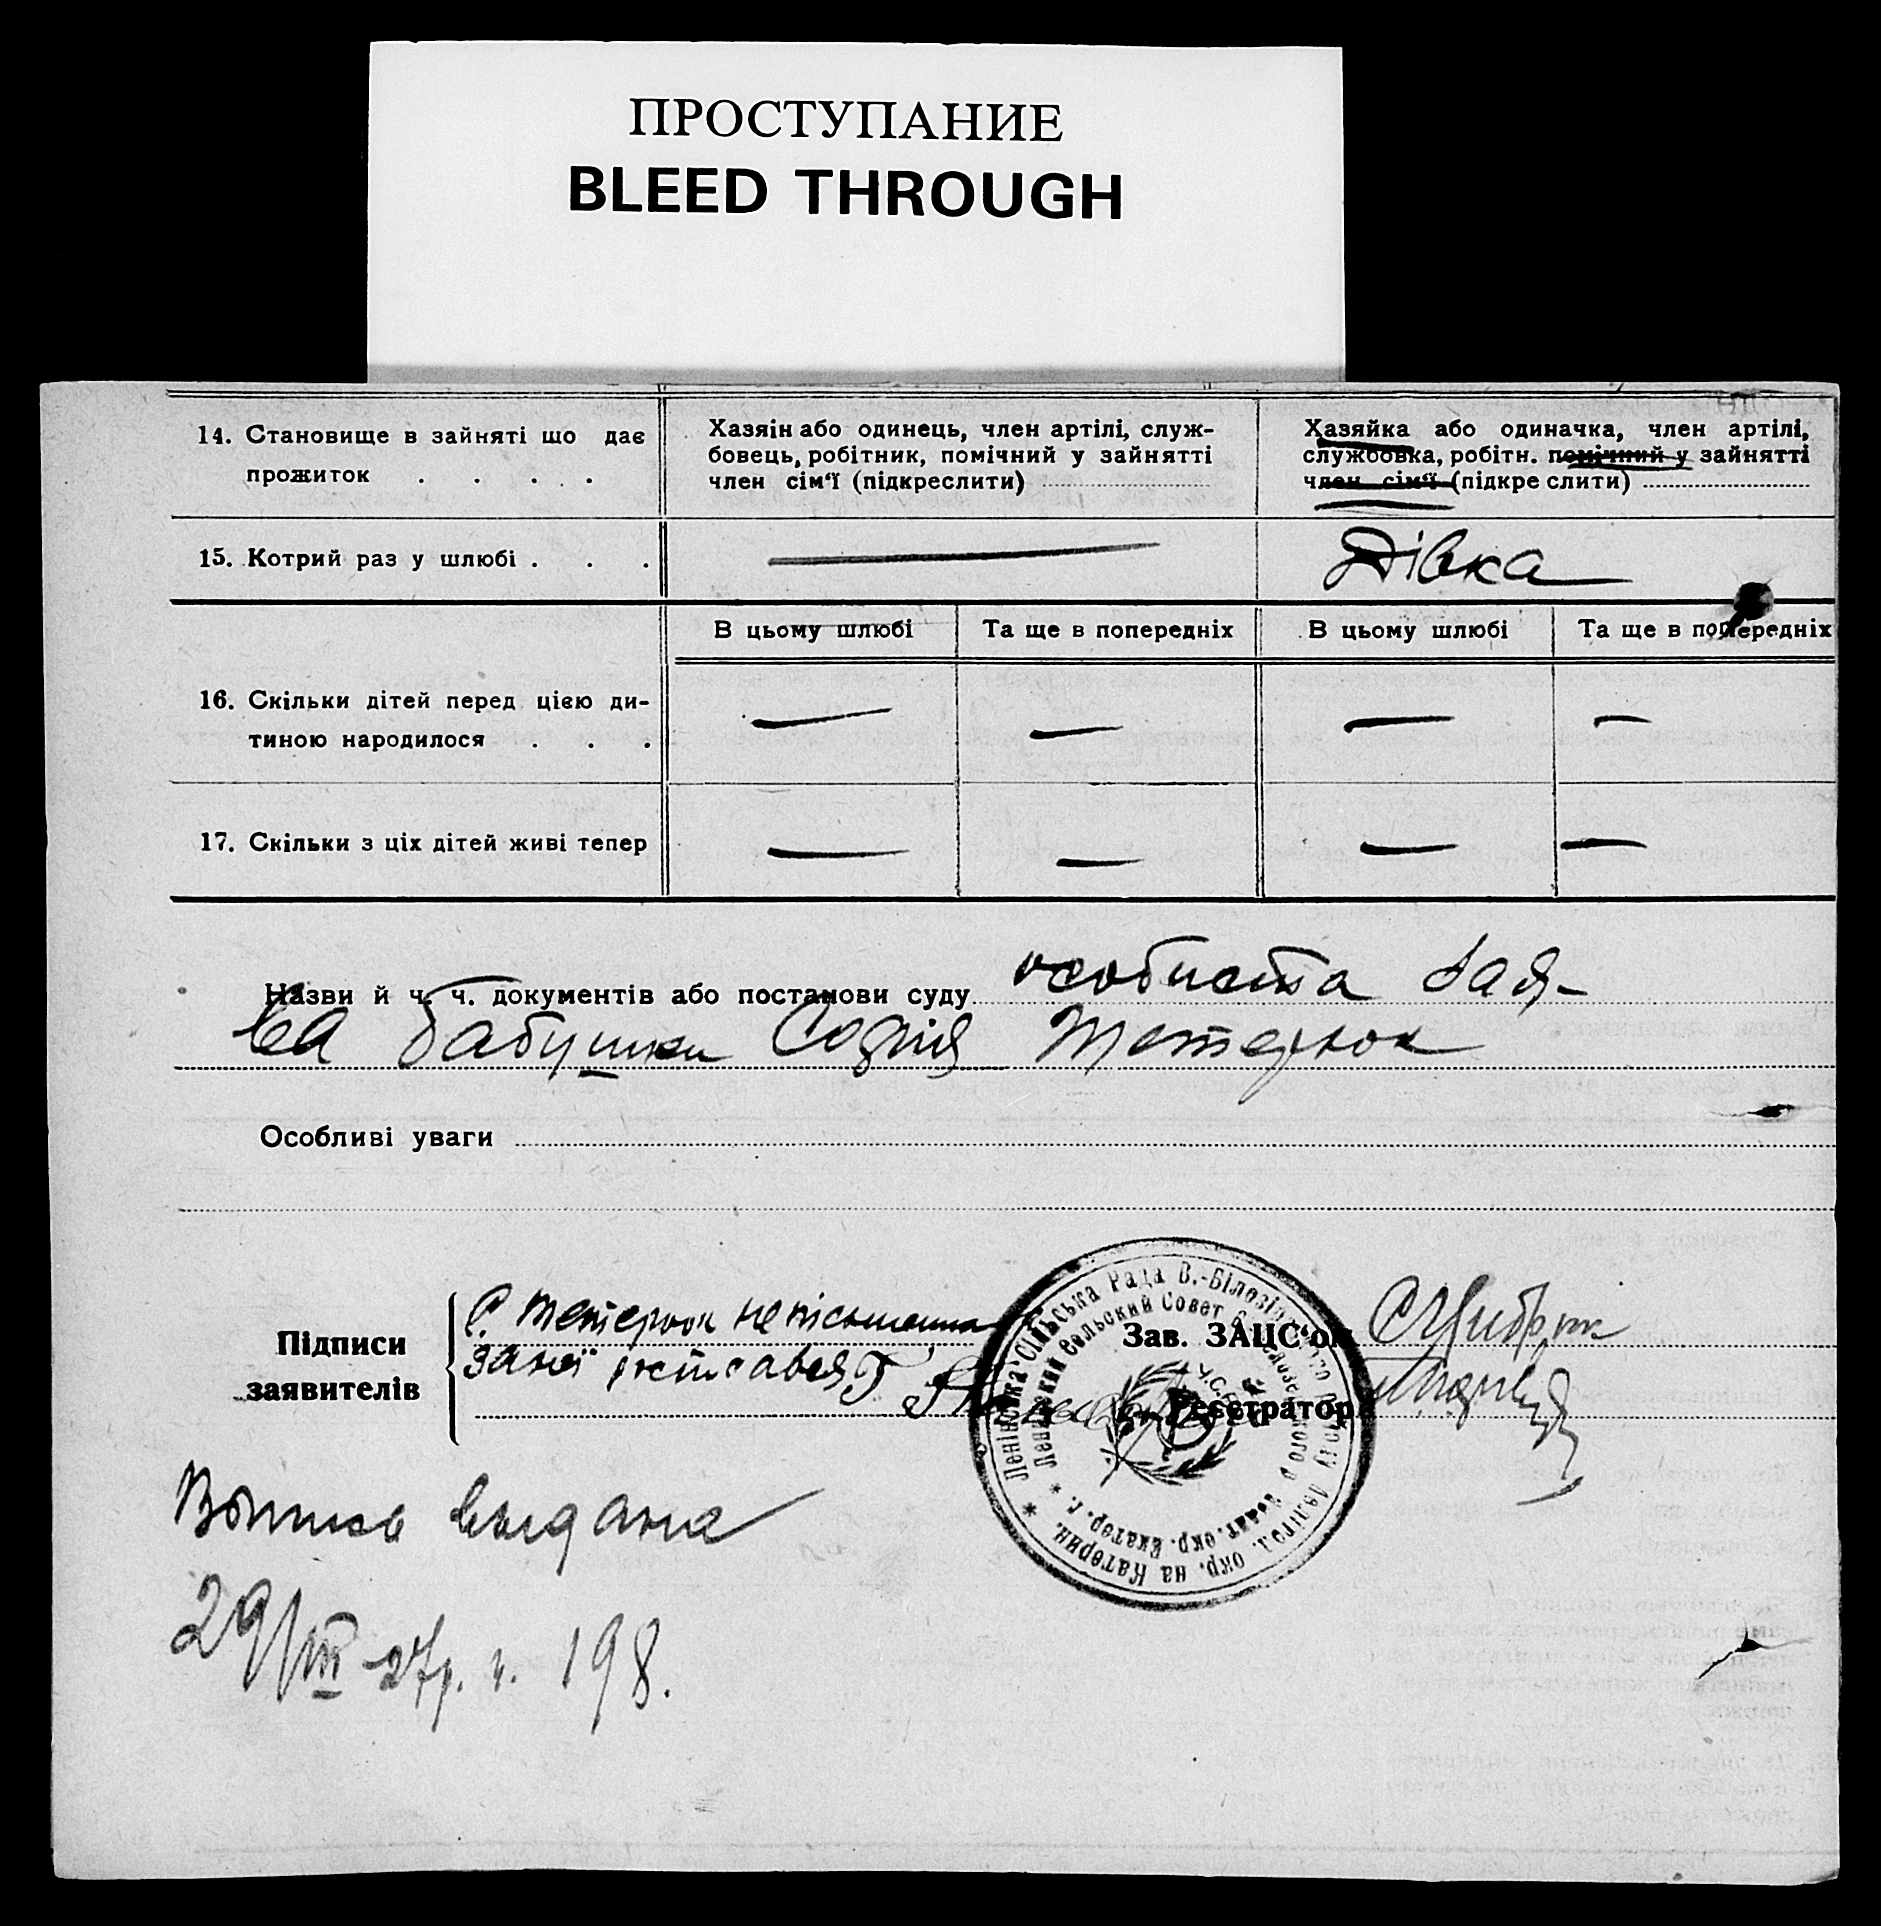 ПРОСТУПАНИЕ
BLEED THROUGH
14. Становище в зайняті що дає
прожиток . . . .
Хазяін або одинець, член артілі, служ-
бовець, робітник, помічний у зайнятті
член сім'ї (підкреслити)
Хазяйка або одиначка, член артілі,
службовка, робітн. помічний у зайнятті
член сім'ї (підкре слити)
15. Котрий раз у шлюбі . . .
Дівка
В цьому шлюбі Та ще в попередніх В цьому шлюбі Та ще в попередніх
16. Скільки дітей перед цією ди-
тиною народилося . . .
17. Скільки з ціх дітей живі тепер
Назви й ч. ч. документів або постанови суду особиста зая-
ва бабушки Софія Тетерюк
Особливі уваги
Підписи
заявителів
С. Тетерюк непісьменна
за неї
Зав. ЗАЦС'ом
Реєстратор
Ленінська Сільська Рада В.-Білозірського району Мелітоп. окр. на Катерин.
Ленинский Сельский Совет
У.С.Р.Р.
выдана
29/VIII 27р. ч. 198.